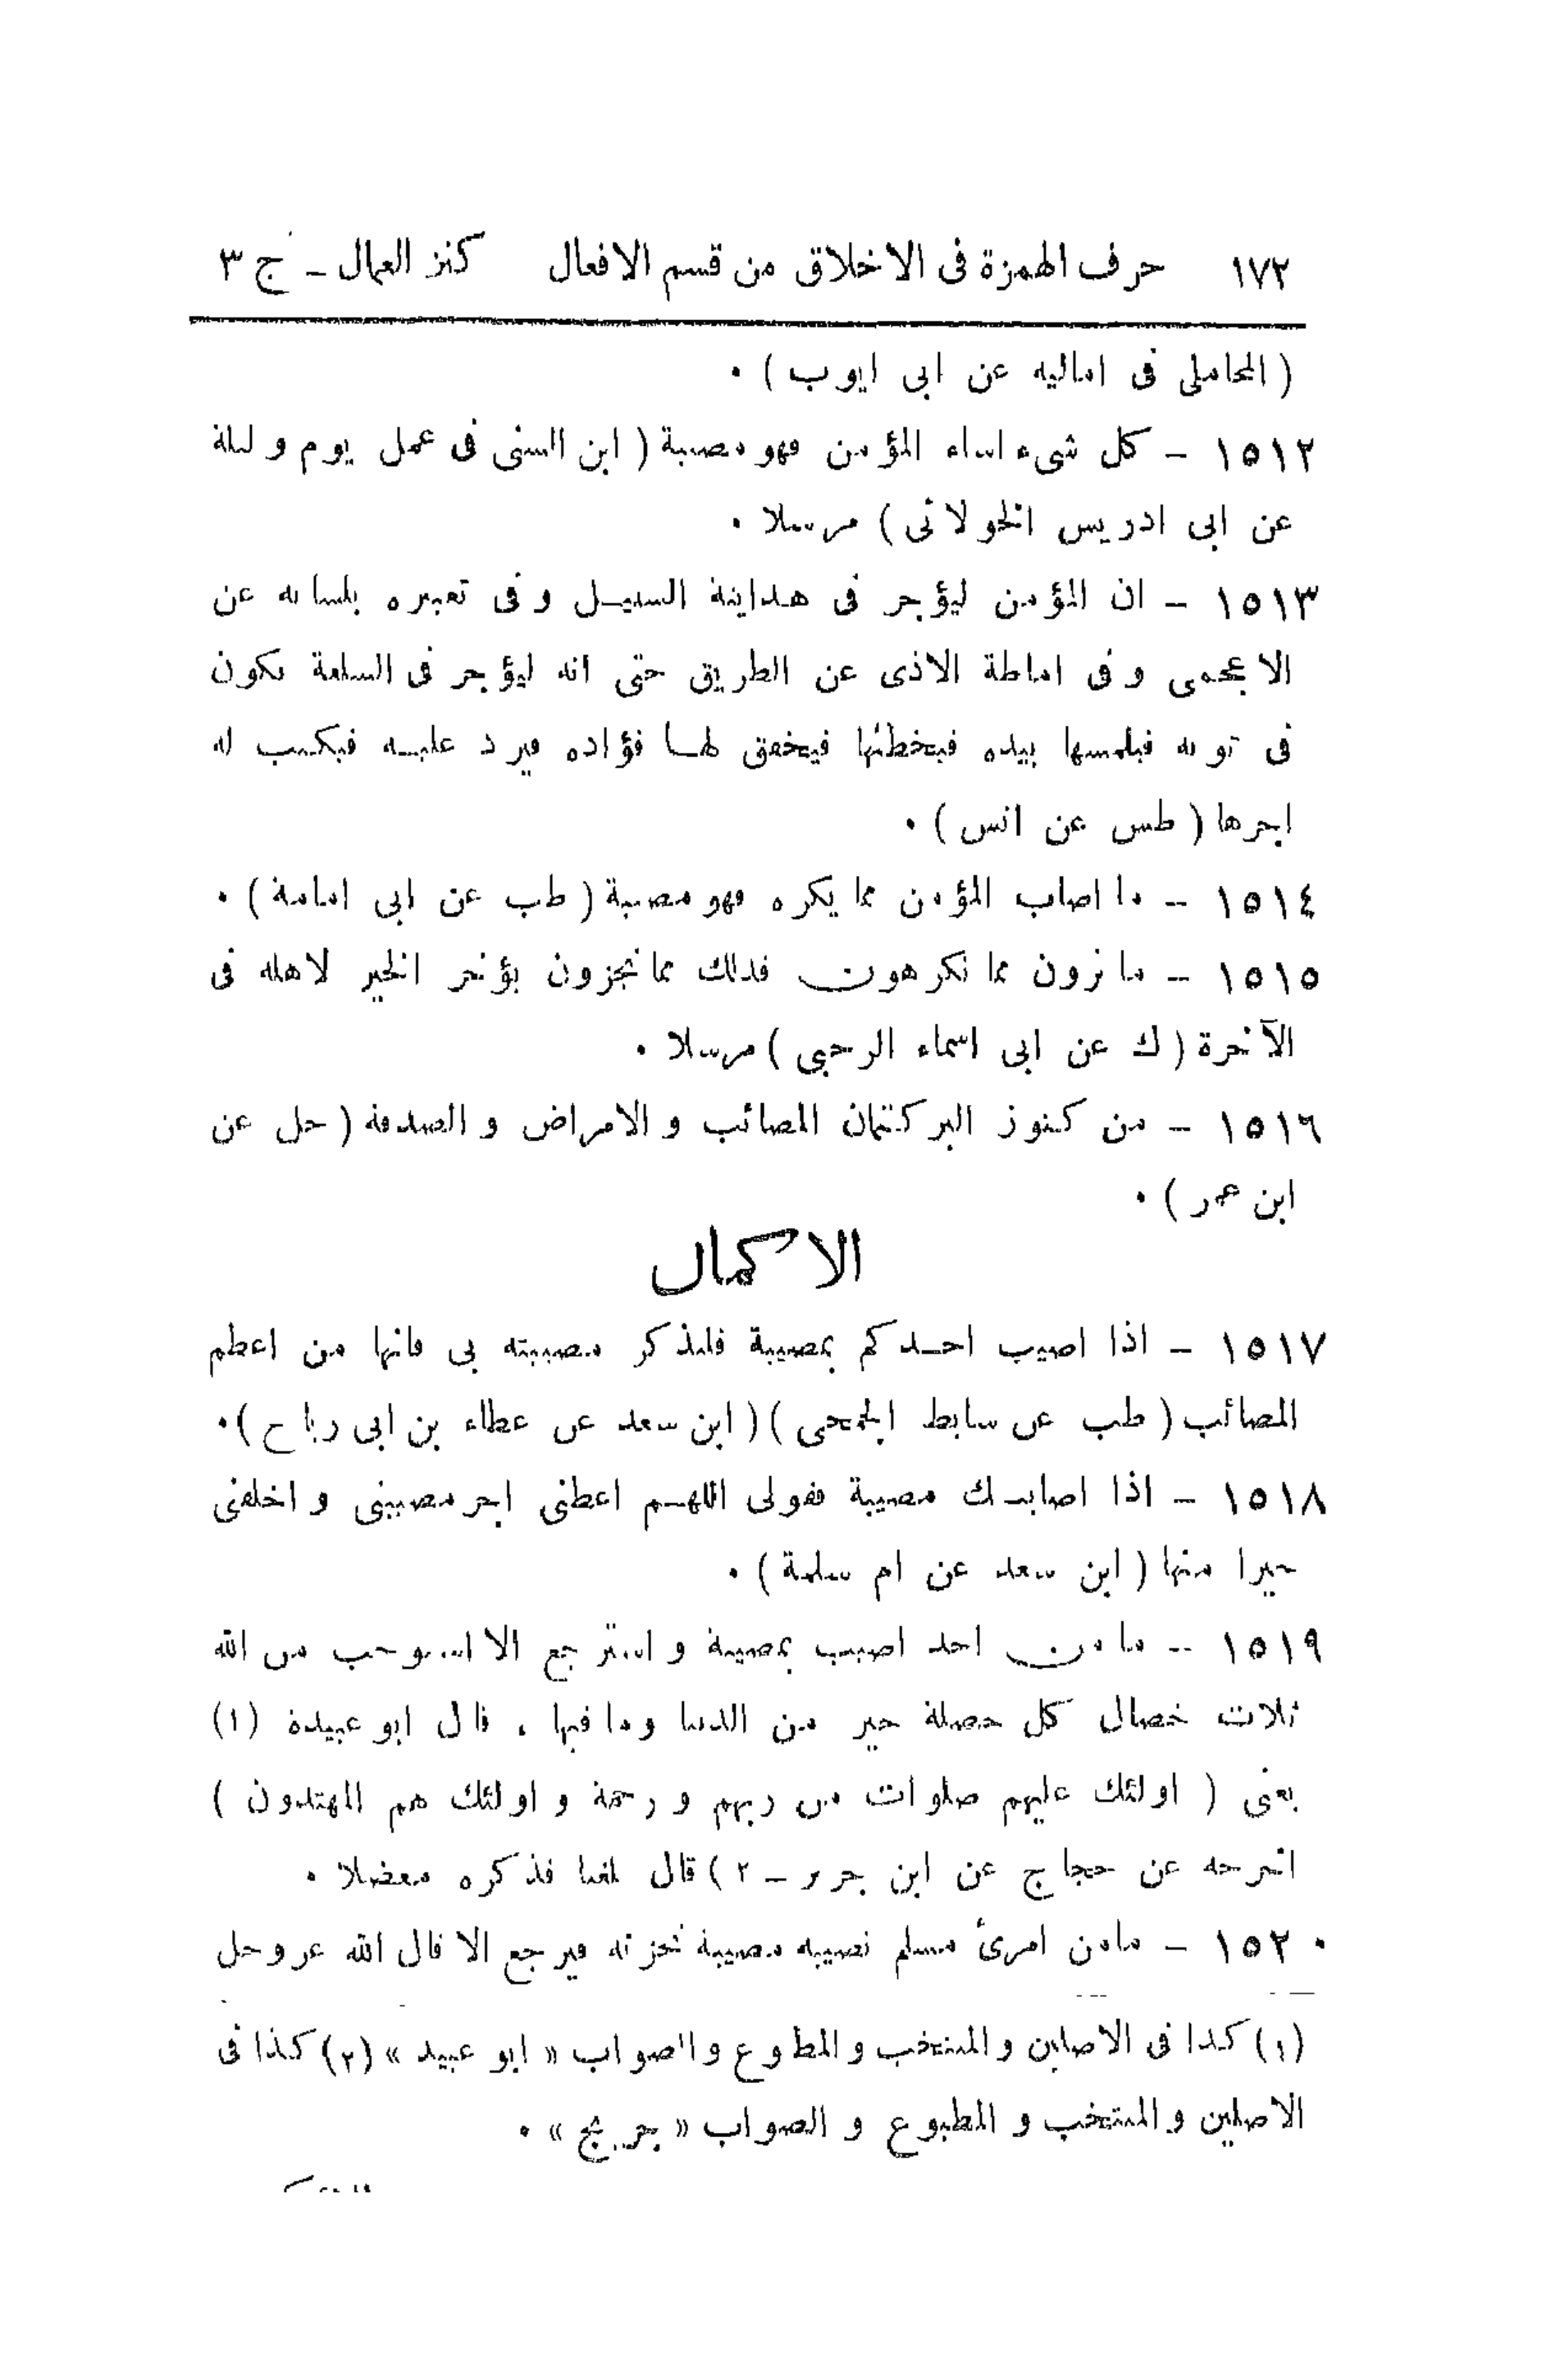 ١٧٢ حرف الهمزة فى الاخلاق من قسم الافعال كنز العمال ـ ج ٣
( المحاملى فى اماليه عن ابى ايوب ) ٠
١٥١٢ ـ كل شىء اساء المؤمن فهو مصيبة ( ابن السنى فى عمل يوم وليلة
عن ابى ادريس الخولانى ) مرسلا ٠
١٥١٣ ـ ان المؤمن ليؤجر فى هداية السبيل وفى تعبيره بلسانه عن
الاعجمى وفى اماطة الاذى عن الطريق حتى انه ليؤجر فى السلعة تكون
فى ثوبه فيلمسها بيده فيخطئها فيخفق لها فؤاده فيرد عليه فيكتب له
اجرها ( طس عن انس ) ٠
١٥١٤ ـ ما اصاب المؤمن مما يكره فهو مصيبة ( طب عن ابى امامة ) ٠
١٥١٥ ـ ما ترون مما تكرهون فذلك مما تجزون يؤخر الخير لاهله فى
الآخرة ( ك عن ابى اسماء الرحبى ) مرسلا ٠
١٥١٦ ـ من كنوز البر كتمان المصائب و الامراض و الصدقة ( حل عن
ابن عمر ) ٠
الاكمال
١٥١٧ ـ اذا اصيب احدكم بمصيبة فليذكر مصيبته بى فانها من اعظم
المصائب ( طب عن سابط الجمحى ) ( ابن سعد عن عطاء بن ابى رباح ) ٠
١٥١٨ ـ اذا اصابتك مصيبة فقولى اللهم اعطنى اجر مصيبتى و اخلفنى
خيرا منها ( ابن سعد عن ام سلمة ) ٠
١٥١٩ ـ ما من احد اصيب بمصيبة و استرجع الا استوجب من الله
ثلاث خصال كل خصلة خير من الدنيا وما فيها ، قال ابو عبيدة (١)
يعنى ( اولئك عليهم صلوات من ربهم و رحمة و اولئك هم المهتدون )
اخرجه عن حجاج عن ابن جرير ـ ٢ ) قال بلغنا فذكره معضلا ٠
١٥٢٠ ـ ما من امرئ مسلم تصيبه مصيبة تحزنه فيرجع الا قال الله عز وجل
(١) كذا فى الاصلين و المنتخب و المطبوع و الصواب « ابو عبيد » (٢) كذا فى
الاصلين و المنتخب و المطبوع و الصواب « جريج » ٠